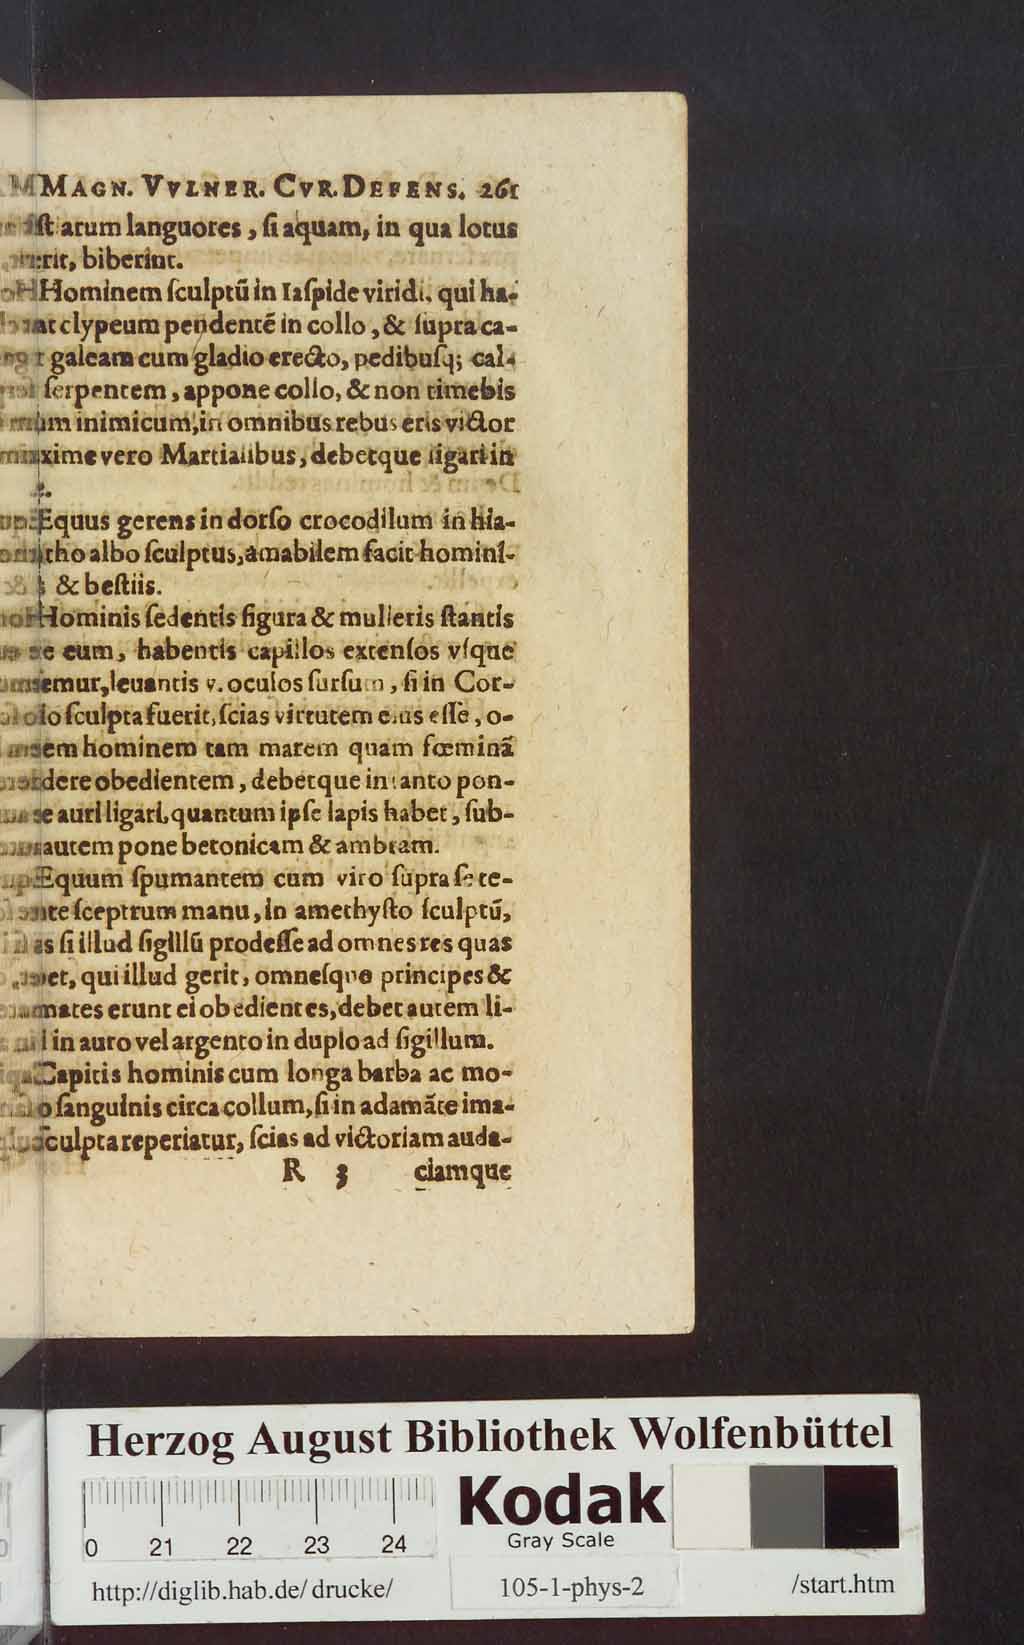 MAGN. VVLNER. CVR. DEFENS. 261
arum languores, ſi aquam, in qua lotus
biberint.
Hominem ſculptū in Iaſpide viridi, qui ha-
clypeum pendentē in collo, & ſupra ca-
galeam cum gladio erecto, pedibuſq; cal-
ſerpentem, appone collo, & non timebis
inimicum, in omnibus rebus eris victor
vero Martialibus, debetque ligari in
Equus gerens in dorſo crocodilum in hia-
tho albo ſculptus, amabilem facit homini-
& beſtiis.
Hominis ſedentis figura & mulieris ſtantis
eum, habentis capillos extenſos vſque
leuantis v. oculos ſurſum, ſi in Cor-
ſculpta fuerit, ſcias virtutem eius eſſe, o-
hominem tam marem quam fœminā
obedientem, debetque in tanto pon-
auri ligari, quantum ipſe lapis habet, ſub-
autem pone betonicam & ambram.
Equum ſpumantem cum viro ſupra ſe te-
ſceptrum manu, in amethyſto ſculptū,
ſi illud ſigillū prodeſſe ad omnes res quas
qui illud gerit, omneſque principes &
erunt ei obedientes, debet autem li-
in auro vel argento in duplo ad ſigillum.
Capitis hominis cum longa barba ac mo-
ſanguinis circa collum, ſi in adamāte ima-
ſculpta reperiatur, ſcias ad victoriam auda-
R 3 ciamque
Herzog August Bibliothek Wolfenbüttel
Kodak
Gray Scale
0 21 22 23 24
http://diglib.hab.de/drucke/ 105-1-phys-2 /start.htm